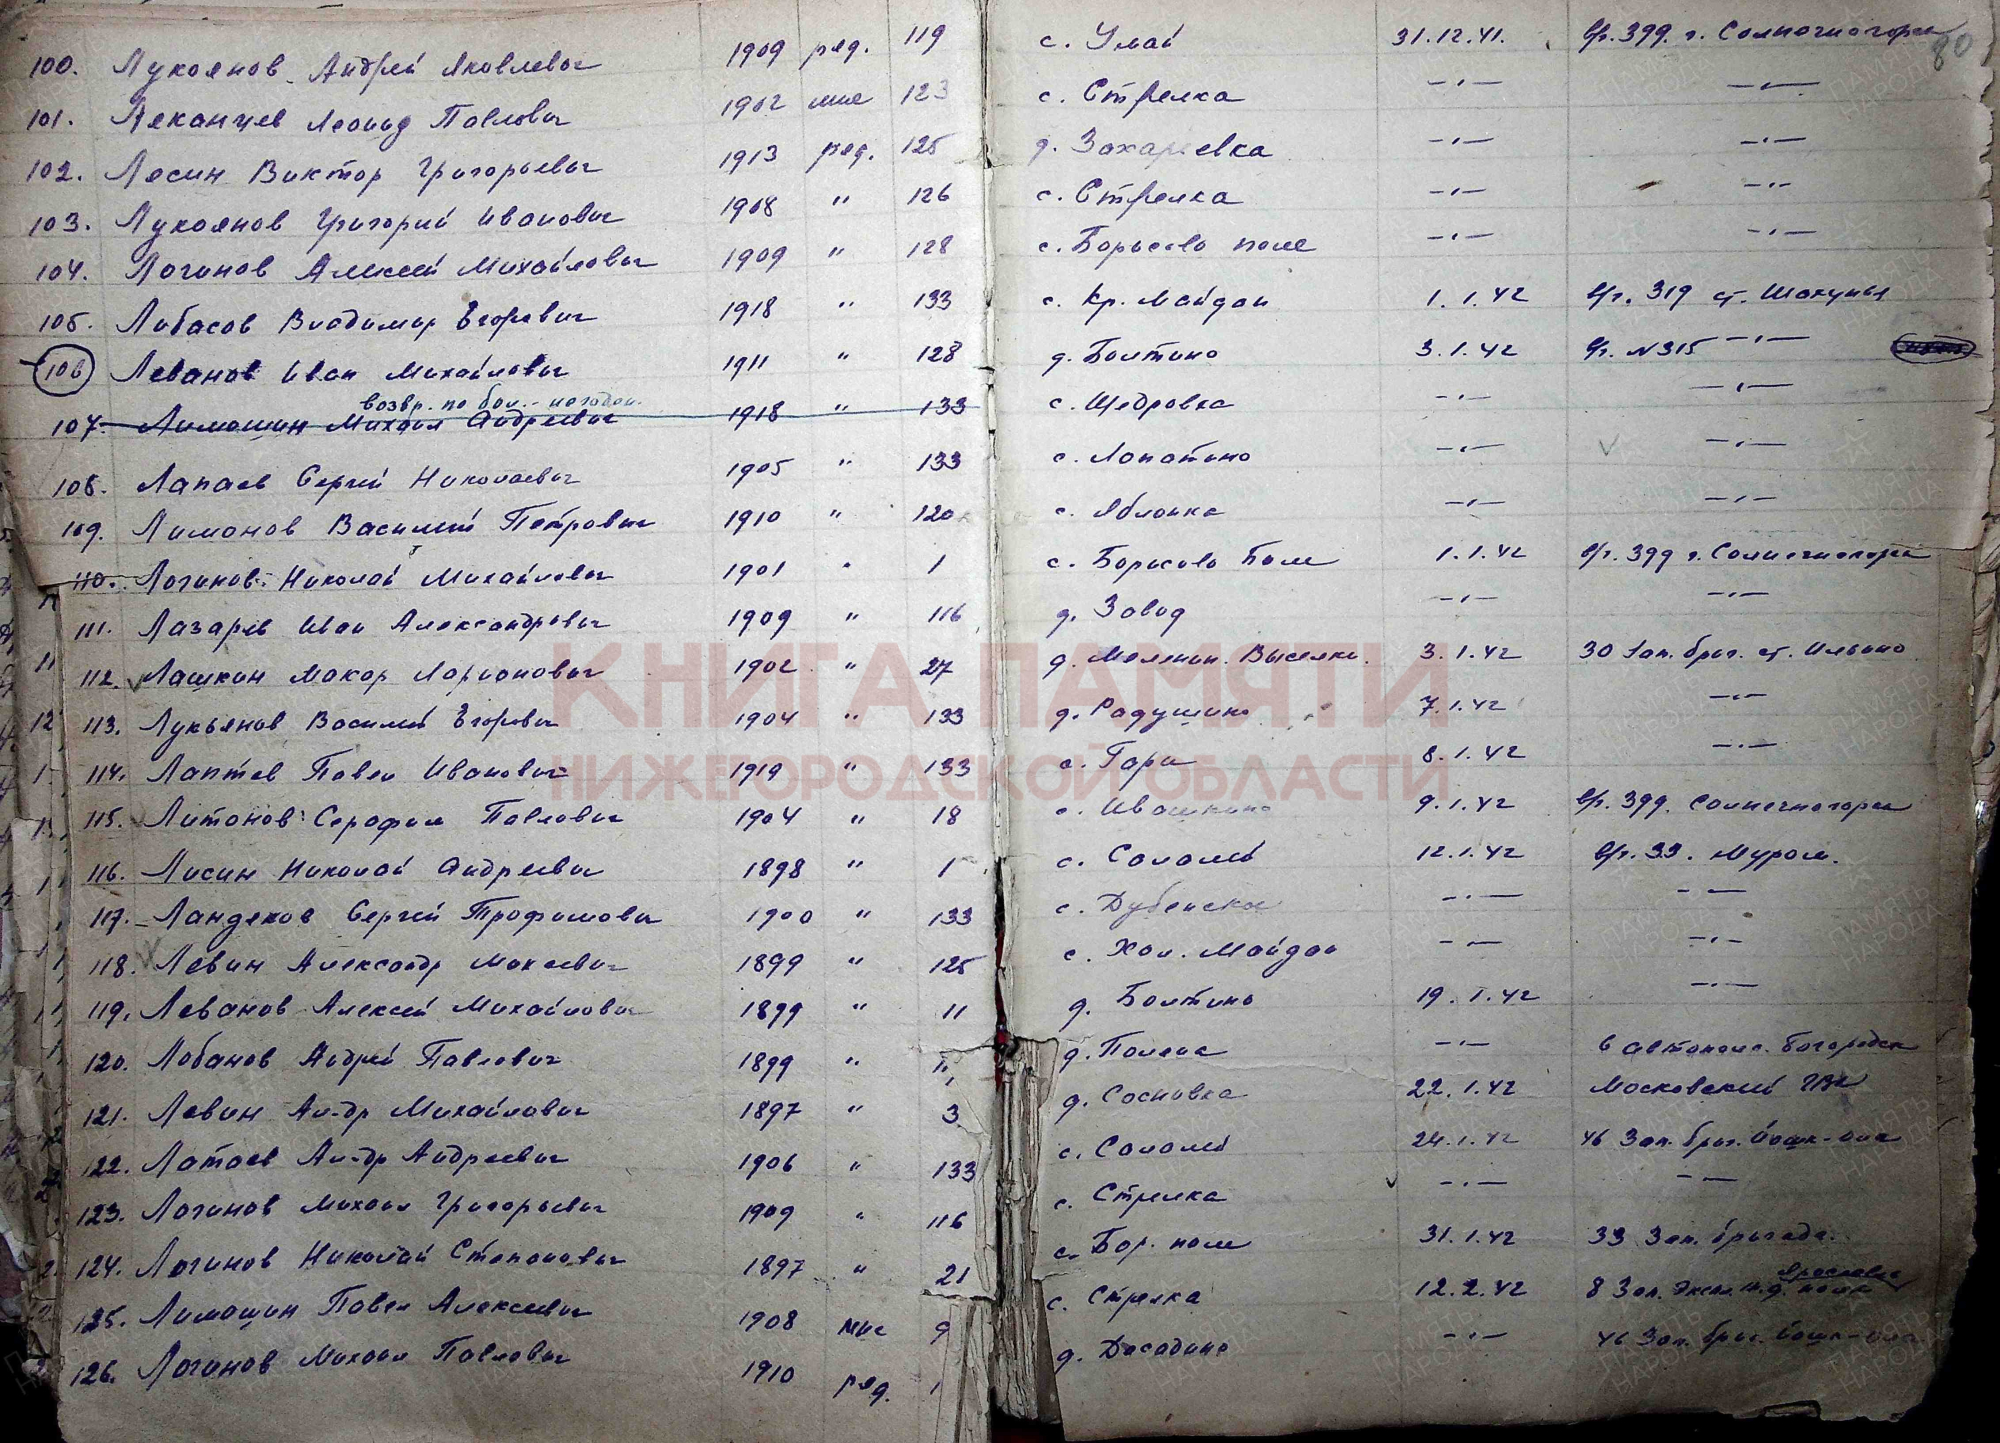 80
100. Лукоянов Андрей Яковлевич 1909 ряд. 119 с. Умай 31.12.41. в/ч. 399. г. Солнечногорск
101. Леканцев Леонид Павлович 1902 мнс 123 с. Стрелка —"— —"—
102. Лосин Виктор Григорьевич 1913 ряд. 125 д. Захаровка —"— —"—
103. Лукоянов Григорий Иванович 1908 " 126 с. Стрелка —"— —"—
104. Логинов Алексей Михайлович 1909 " 128 с. Борисово поле —"— —"—
105. Лобасов Владимир Егорович 1918 " 133 с. Кр. Майдан 1.1.42 в/ч. 319 ст. Шахунья
106 Леванов Иван Михайлович 1911 " 128 д. Болтино 3.1.42 в/ч. N315 —"—
возвр. по бол. - негоден.
107. Лимошин Михаил Андреевич 1918 " 133 с. Щедровка —"— —"—
108. Лапаев Сергей Николаевич 1905 " 133 с. Лопатино —"— —"—
109. Лимонов Василий Петрович 1910 " 120 с. Яблонка —"— —"—
110. Логинов Николай Михайлович 1901 " 1 с. Борисово Поле 1.1.42 в/ч. 399 г. Солнечногорск
111. Лазарев Иван Александрович 1909 " 116 д. Завод —"— —"—
112. Лашкин Макар Ларионович 1902 " 27 д. Выселки. 3.1.42 30 Зап. бриг. ст. Ильино
113. Лукьянов Василий Егорович 1904 " 133 д. Радушино 7.1.42 —"—
114. Лаптев Павел Иванович 1919 " 133 с. Гари 8.1.42 —"—
115. Литонов Серафим Павлович 1904 " 18 с. Ивашкино 9.1.42 в/ч. 399. Солнечногорск
116. Лисин Николай Андреевич 1898 " 1 с. Салалей 12.1.42 в/ч. 33. Муром.
117. Ландехов Сергей Трофимович 1900 " 133 с. Дубенское —"— —"—
118. Левин Александр Мокеевич 1899 " 125 с. Хол. Майдан —"— —"—
119. Леванов Алексей Михайлович 1899 " 11 д. Болтино 19.1.42 —"—
120. Лобанов Андрей Павлович 1899 " " д. Поляна —"— 6 Богородск
121. Левин Ал-др Михайлович 1897 " 3 д. Сосновка 22.1.42 Московский ГВК
122. Лотаев Ал-др Андреевич 1906 " 133 с. Салалей 24.1.42 46 Зап. бриг. Йошк-Ола
123. Логинов Михаил Григорьевич 1909 " 116 с. Стрелка —"— —"—
124. Логинов Николай Степанович 1897 " 21 с. Бор. поле 31.1.42 33 Зап. бригада.
Ярославль
125. Лимошин Павел Алексеевич 1908 мнс 9 с. Стрелка 12.2.42 8 Зап. Экспл. ж.д. полк
126. Логинов Михаил Павлович 1910 ряд. 1 д. Досадино —"— 46 Зап. бриг. Йошк-Ола
КНИГА ПАМЯТИ
НИЖЕГОРОДСКОЙ ОБЛАСТИ